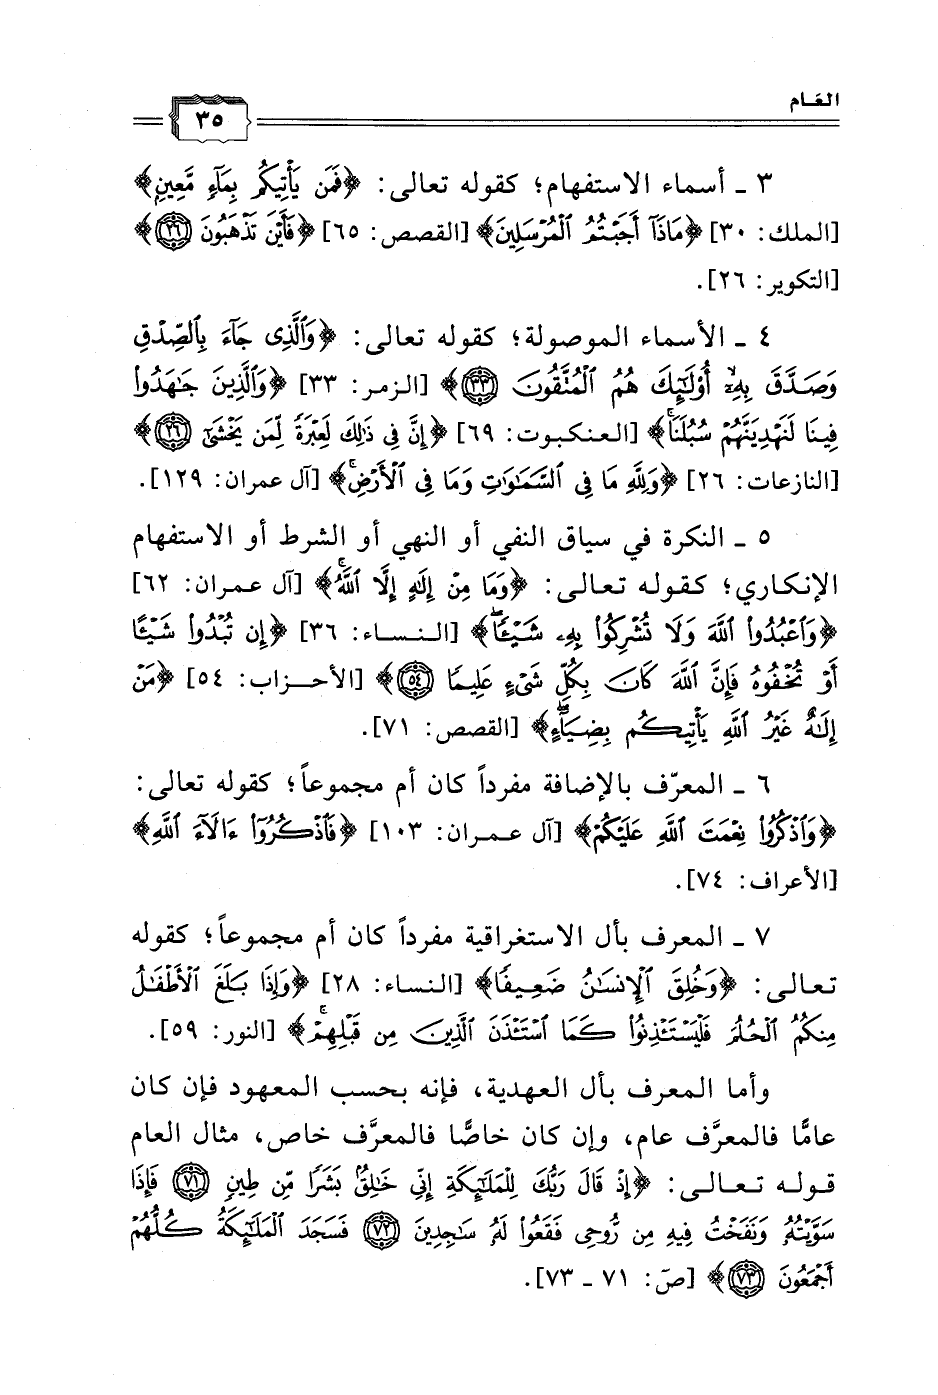 العَام
٣٥
٣ ـ أسماء الاستفهام؛ كقوله تعالى: ﴿فَمَن يَأْتِيكُم بِمَآءٍ مَّعِينٍ﴾
[الملك: ٣٠] ﴿مَاذَآ أَجَبْتُمُ ٱلْمُرْسَلِينَ﴾ [القصص: ٦٥] ﴿فَأَيْنَ تَذْهَبُونَ ٢٦﴾
[التكوير: ٢٦].
٤ ـ الأسماء الموصولة؛ كقوله تعالى: ﴿وَٱلَّذِى جَآءَ بِٱلصِّدْقِ
وَصَدَّقَ بِهِۦٓ أُوْلَٰٓئِكَ هُمُ ٱلْمُتَّقُونَ ٣٣﴾ [الزمر: ٣٣] ﴿وَٱلَّذِينَ جَٰهَدُوا۟
فِينَا لَنَهْدِيَنَّهُمْ سُبُلَنَاۚ﴾ [العنكبوت: ٦٩] ﴿إِنَّ فِى ذَٰلِكَ لَعِبْرَةً لِّمَن يَخْشَىٰٓ ٢٦﴾
[النازعات: ٢٦] ﴿وَلِلَّهِ مَا فِى ٱلسَّمَٰوَٰتِ وَمَا فِى ٱلْأَرْضِۚ﴾ [آل عمران: ١٢٩].
٥ ـ النكرة في سياق النفي أو النهي أو الشرط أو الاستفهام
الإنكاري؛ كقوله تعالى: ﴿وَمَا مِنْ إِلَٰهٍ إِلَّا ٱللَّهُۚ﴾ [آل عمران: ٦٢]
﴿وَٱعْبُدُوا۟ ٱللَّهَ وَلَا تُشْرِكُوا۟ بِهِۦ شَيْـًٔاۖ﴾ [النساء: ٣٦] ﴿إِن تُبْدُوا۟ شَيْـًٔا
أَوْ تُخْفُوهُ فَإِنَّ ٱللَّهَ كَانَ بِكُلِّ شَىْءٍ عَلِيمًا ٥٤﴾ [الأحزاب: ٥٤] ﴿مَنْ
إِلَٰهٌ غَيْرُ ٱللَّهِ يَأْتِيكُم بِضِيَآءٍۖ﴾ [القصص: ٧١].
٦ ـ المعرّف بالإضافة مفرداً كان أم مجموعاً؛ كقوله تعالى:
﴿وَٱذْكُرُوا۟ نِعْمَتَ ٱللَّهِ عَلَيْكُمْ﴾ [آل عمران: ١٠٣] ﴿فَٱذْكُرُوٓا۟ ءَالَآءَ ٱللَّهِ﴾
[الأعراف: ٧٤].
٧ ـ المعرف بأل الاستغراقية مفرداً كان أم مجموعاً؛ كقوله
تعالى: ﴿وَخُلِقَ ٱلْإِنسَٰنُ ضَعِيفًا﴾ [النساء: ٢٨] ﴿وَإِذَا بَلَغَ ٱلْأَطْفَٰلُ
مِنكُمُ ٱلْحُلُمَ فَلْيَسْتَـْٔذِنُوا۟ كَمَا ٱسْتَـْٔذَنَ ٱلَّذِينَ مِن قَبْلِهِمْۚ﴾ [النور: ٥٩].
وأما المعرف بأل العهدية، فإنه بحسب المعهود فإن كان
عامًّا فالمعرَّف عام، وإن كان خاصًّا فالمعرَّف خاص، مثال العام
قوله تعالى: ﴿إِذْ قَالَ رَبُّكَ لِلْمَلَٰٓئِكَةِ إِنِّى خَٰلِقٌۢ بَشَرًا مِّن طِينٍ ٧١ فَإِذَا
سَوَّيْتُهُۥ وَنَفَخْتُ فِيهِ مِن رُّوحِى فَقَعُوا۟ لَهُۥ سَٰجِدِينَ ٧٢ فَسَجَدَ ٱلْمَلَٰٓئِكَةُ كُلُّهُمْ
أَجْمَعُونَ ٧٣﴾ [صٓ: ٧١ ـ ٧٣].